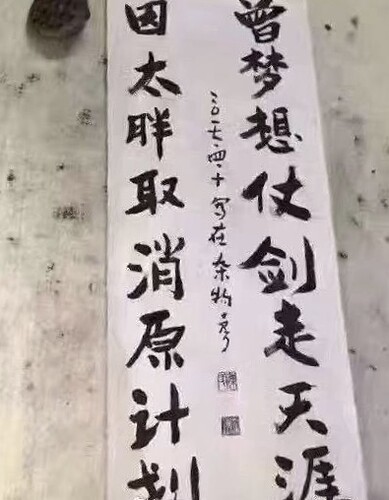 曾梦想仗剑走天涯
因太胖取消原计划
二〇一七.四.十写在杂物旁